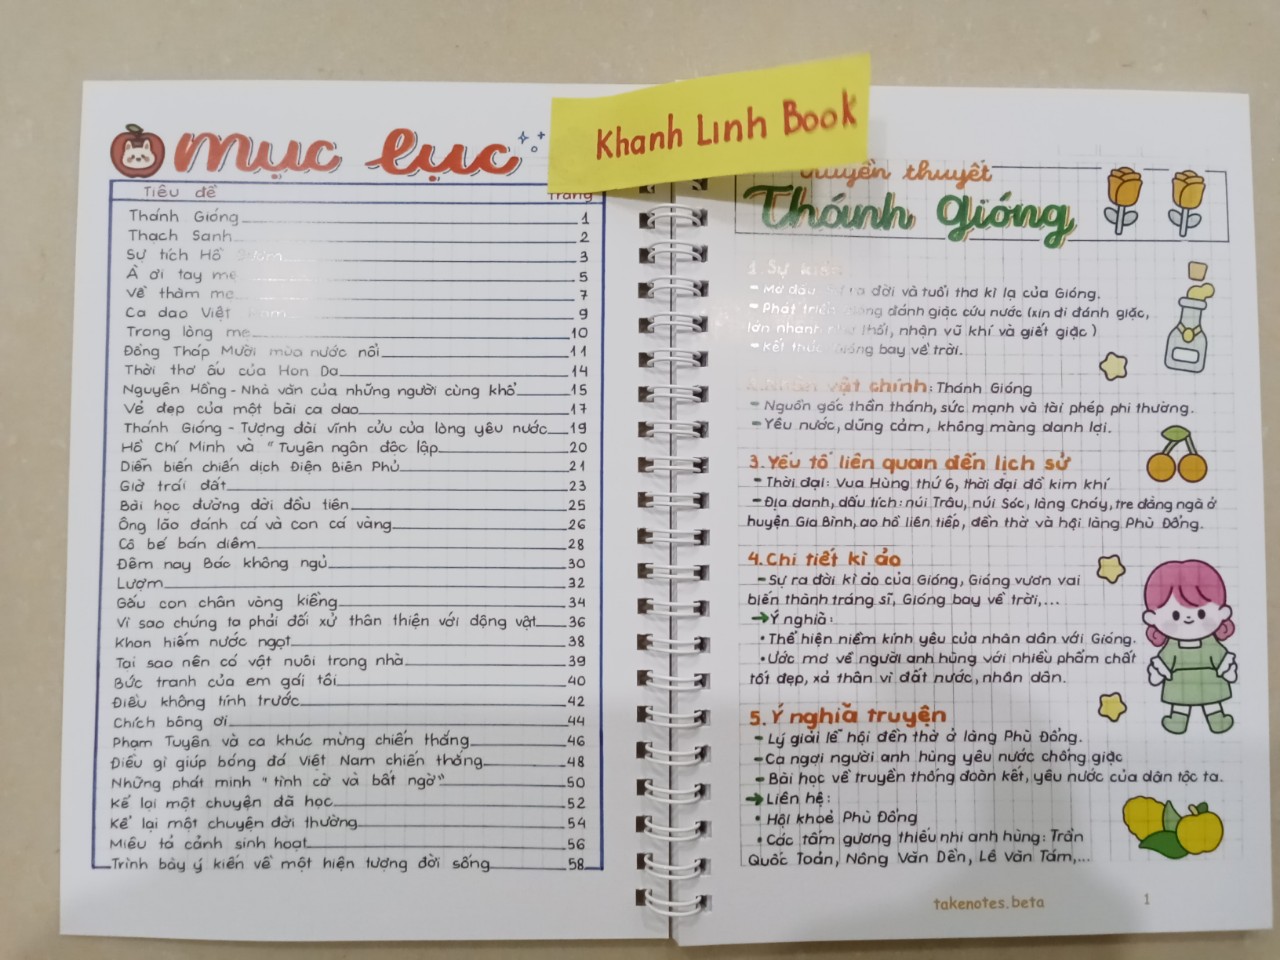 Khanh Linh Book
mục lục
Tiêu đề Trang
Thánh Gióng 1
Thạch Sanh 2
Sự tích Hồ 3
À ơi tay mẹ 5
Về thăm mẹ 7
Ca dao Việt 9
Trong lòng mẹ 10
Đồng Tháp Mười mùa nước nổi 11
Thời thơ ấu của Hon Da 14
Nguyên Hồng - Nhà văn của những người cùng khổ 15
Vẻ đẹp của một bài ca dao 17
Thánh Gióng - Tượng đài vĩnh cửu của lòng yêu nước 19
Hồ Chí Minh và "Tuyên ngôn độc lập 20
Diễn biến chiến dịch Điện Biên Phủ 21
Giờ trái đất 23
Bài học đường đời đầu tiên 25
Ông lão đánh cá và con cá vàng 26
Cô bé bán diêm 28
Đêm nay Bác không ngủ 30
Lượm 32
Gấu con chân vòng kiềng 34
Vì sao chúng ta phải đối xử thân thiện với động vật 36
Khan hiếm nước ngọt 38
Tại sao nên có vật nuôi trong nhà 39
Bức tranh của em gái tôi 40
Điều không tính trước 42
Chích bông ơi 44
Phạm Tuyên và ca khúc mừng chiến thắng 46
Điều gì giúp bóng đá Việt Nam chiến thắng 48
Những phát minh "tình cờ và bất ngờ" 50
Kể lại một chuyện đã học 52
Kể lại một chuyện đời thường 54
Miêu tả cảnh sinh hoạt 56
Trình bày ý kiến về một hiện tượng đời sống 58
truyền thuyết
Thánh Gióng
1. Sự
- Mở đầu ra đời và tuổi thơ kì lạ của Gióng.
- Phát triển đánh giặc cứu nước (xin đi đánh giặc,
lớn nhanh thổi, nhận vũ khí và giết giặc)
- Kết thúc Gióng bay về trời.
vật chính: Thánh Gióng
- Nguồn gốc thần thánh, sức mạnh và tài phép phi thường.
- Yêu nước, dũng cảm, không màng danh lợi.
3. Yếu tố liên quan đến lịch sử
- Thời đại: Vua Hùng thứ 6, thời đại đồ kim khí
- Địa danh, dấu tích: núi Trâu, núi Sóc, làng Cháy, tre đằng ngà ở
huyện Gia Bình, ao hồ liên tiếp, đền thờ và hội làng Phù Đổng.
4. Chi tiết kì ảo
- Sự ra đời kì ảo của Gióng, Gióng vươn vai
biến thành tráng sĩ, Gióng bay về trời,...
→ Ý nghĩa:
• Thể hiện niềm kính yêu của nhân dân với Gióng.
• Ước mơ về người anh hùng với nhiều phẩm chất
tốt đẹp, xả thân vì đất nước, nhân dân.
5. Ý nghĩa truyện
- Lý giải lễ hội đền thờ ở làng Phù Đổng.
- Ca ngợi người anh hùng yêu nước chống giặc
- Bài học về truyền thống đoàn kết, yêu nước của dân tộc ta.
→ Liên hệ:
• Hội khoẻ Phù Đổng
• Các tấm gương thiếu nhi anh hùng: Trần
Quốc Toản, Nông Văn Dền, Lê Văn Tám,...
takenotes.beta 1